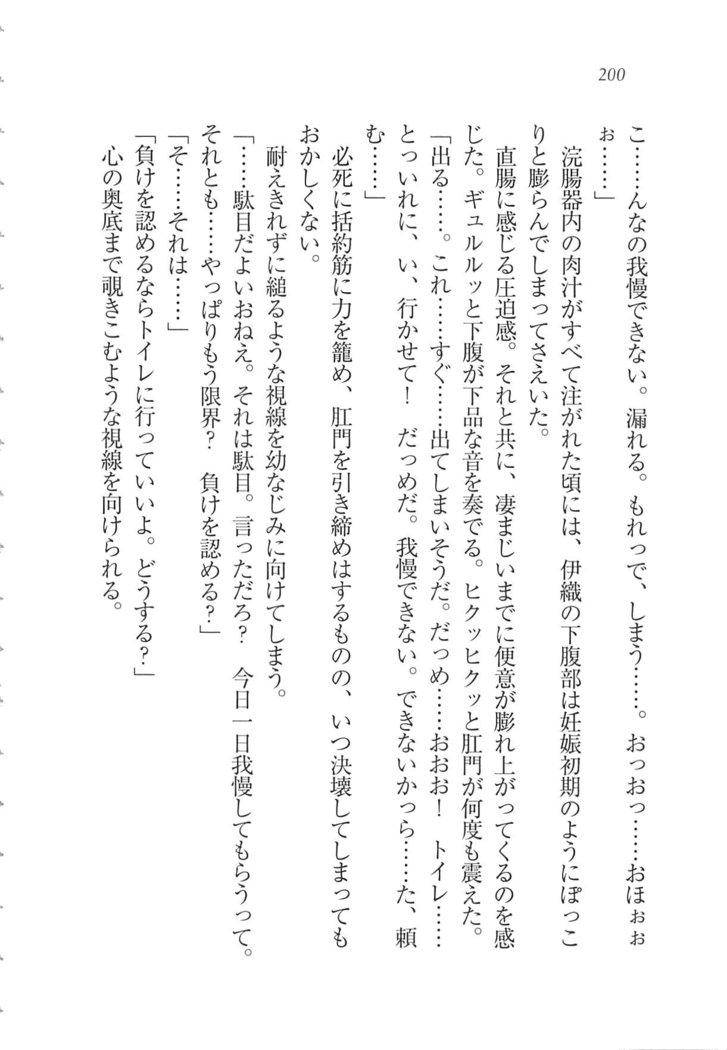 200
こ……んなの我慢できない。漏れる。もれっで、しまう……。おっおっ……おほぉぉ
ぉ……」
浣腸器内の肉汁がすべて注がれた頃には、伊織の下腹部は妊娠初期のようにぽっこ
りと膨らんでしまってさえいた。
直腸に感じる圧迫感。それと共に、凄まじいまでに便意が膨れ上がってくるのを感
じた。ギュルルッと下腹が下品な音を奏でる。ヒクッヒクッと肛門が何度も震えた。
「出る……。これ……すぐ……出てしまいそうだ。だっめ……おおお！　トイレ……
とっいれに、い、行かせて！　だっめだ。我慢できない。できないかっら……た、頼
む……」
必死に括約筋に力を籠め、肛門を引き締めはするものの、いつ決壊してしまっても
おかしくない。
耐えきれずに縋るような視線を幼なじみに向けてしまう。
「……駄目だよいおねえ。それは駄目。言っただろ？　今日一日我慢してもらうって。
それとも……やっぱりもう限界？　負けを認める？」
「そ……それは……」
「負けを認めるならトイレに行っていいよ。どうする？」
心の奥底まで覗きこむような視線を向けられる。